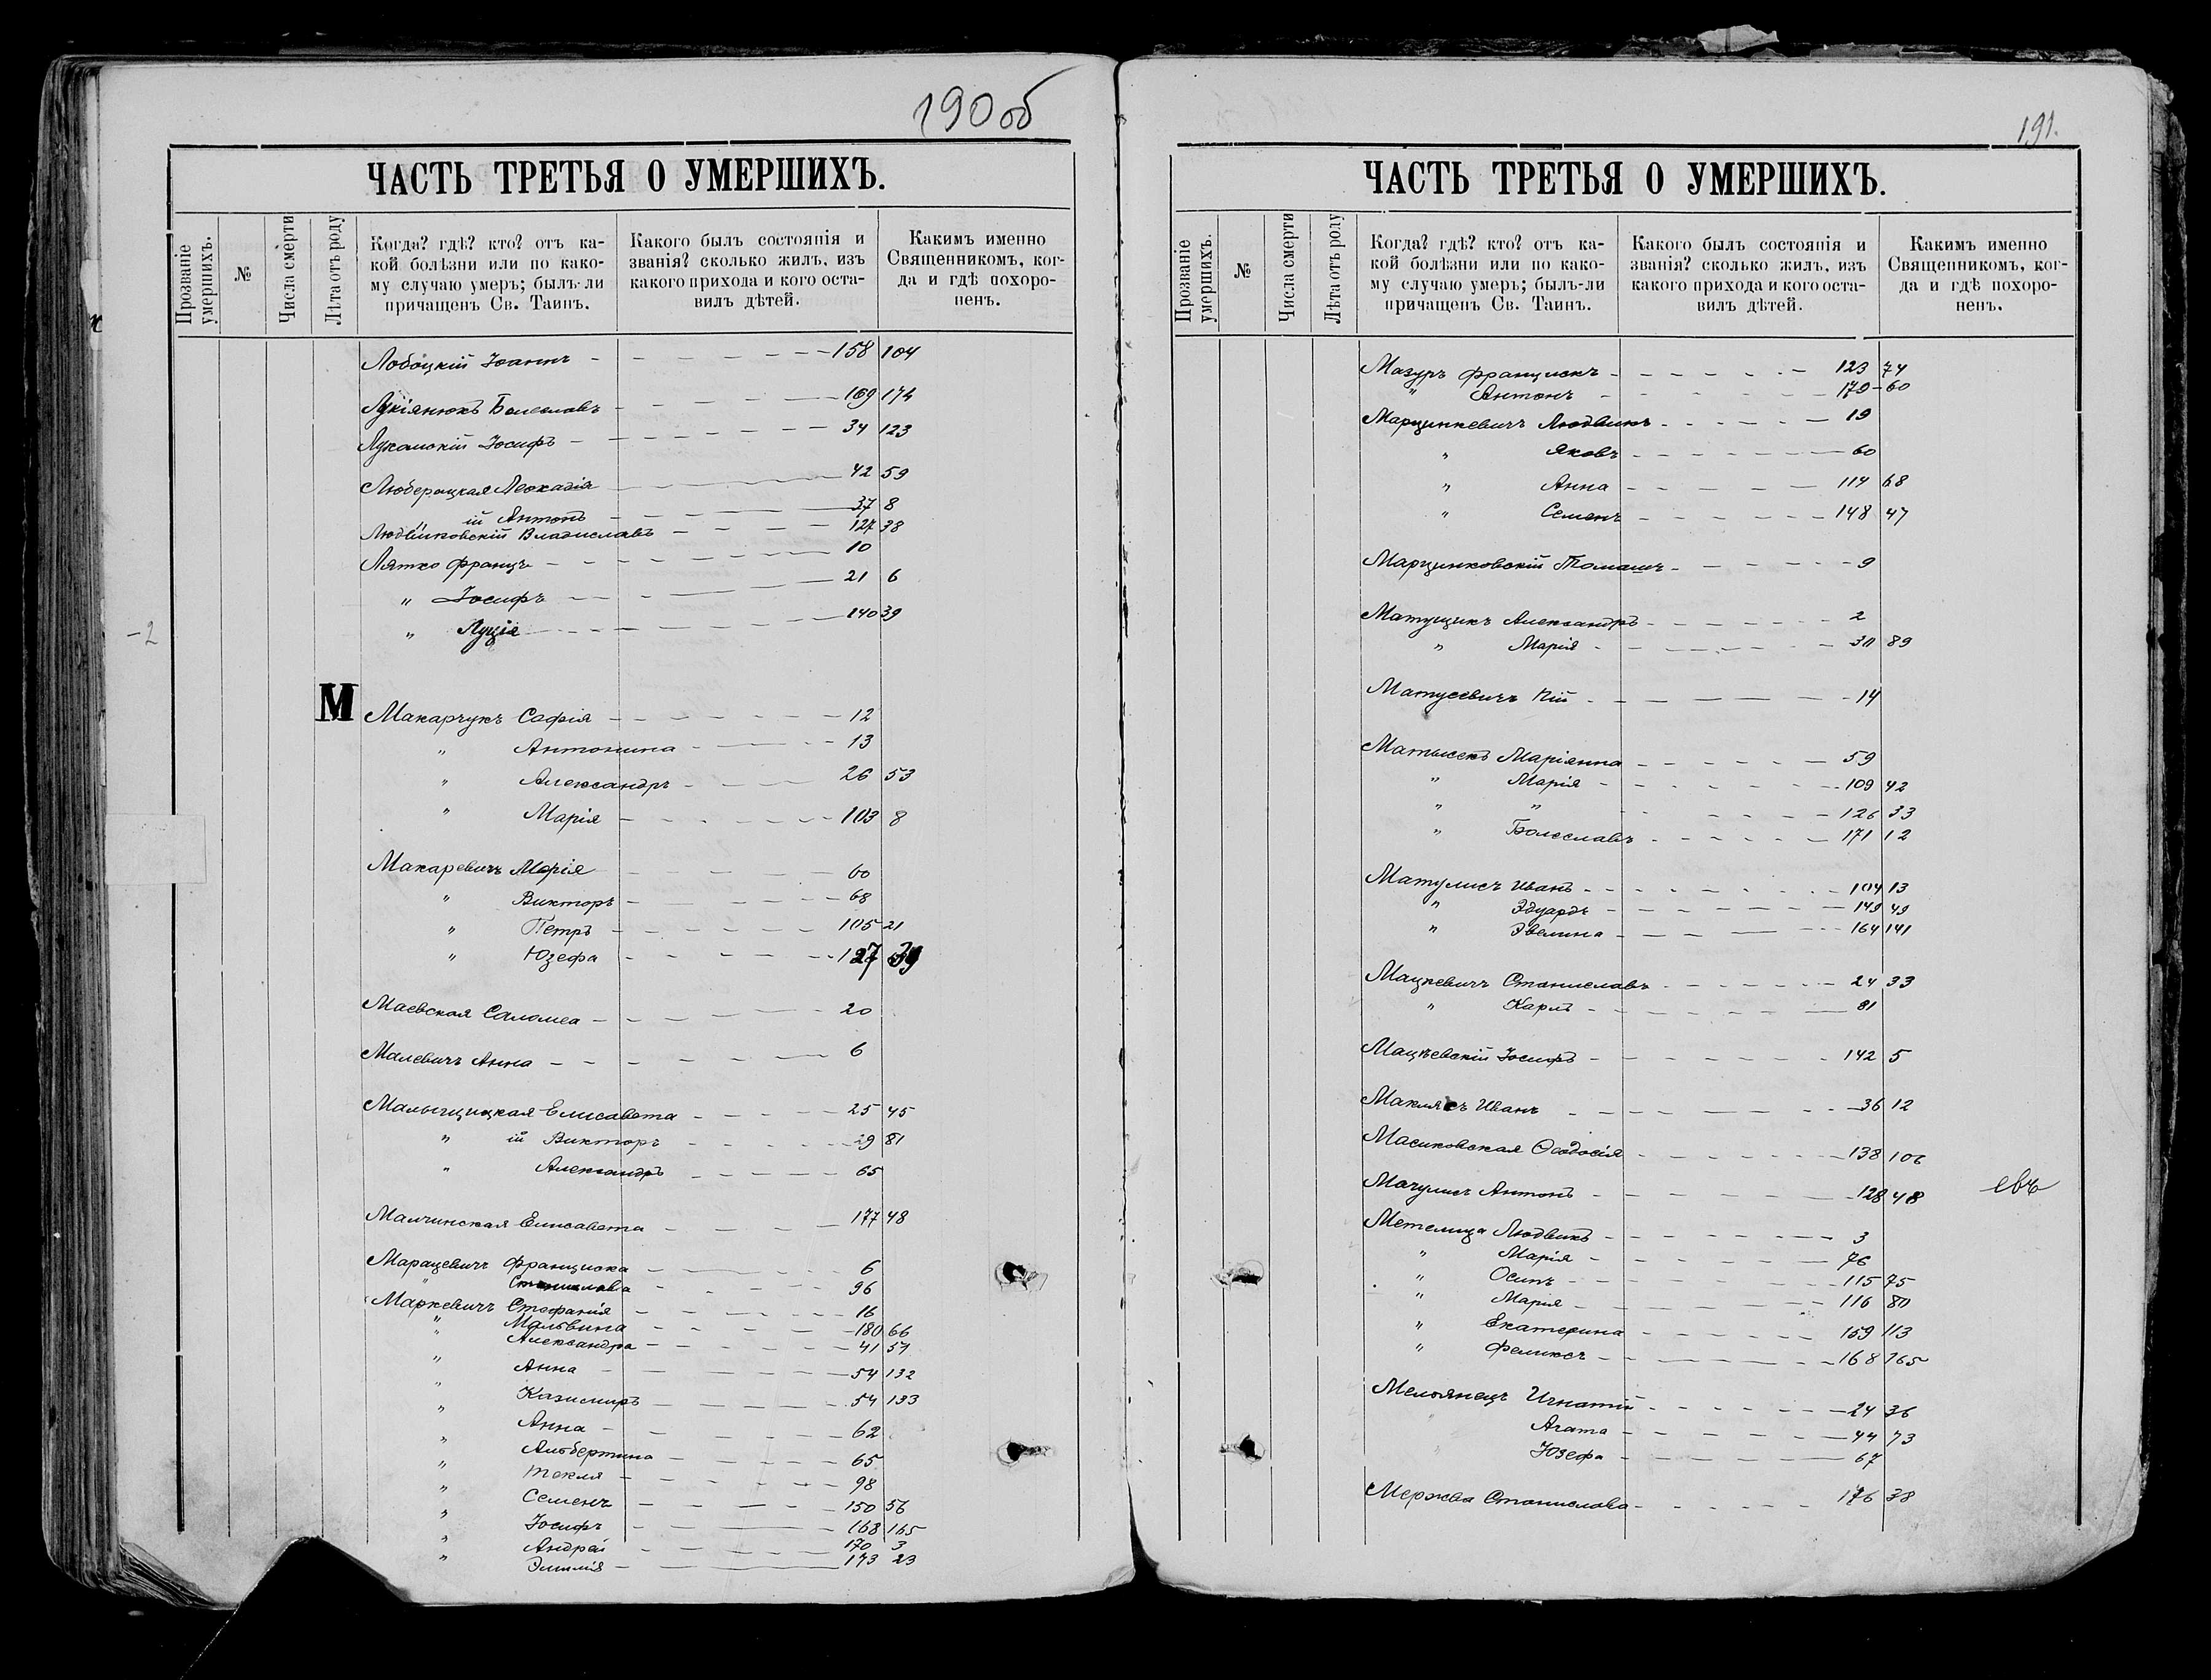 190 об
ЧАСТЬ ТРЕТЬЯ О УМЕРШИХЪ.
Прозваніе умершихъ.
№
Числа смерти
Лѣта отъ роду
Когда? гдѣ? кто? отъ ка-
кой болѣзни или по како-
му случаю умеръ; былъ-ли
причащенъ Св. Таинъ.
Какого былъ состоянія и
званія? сколько жилъ, изъ
какого прихода и кого оста-
вилъ дѣтей.
Какимъ именно
Священникомъ, ког-
да и гдѣ похоро-
ненъ.
Лобоцкій Іоаннъ - - - - 158 104
Лукіянюкъ Болеславъ - - - - 169 174
Лукомскій Іосифъ - - - - 34 123
Люберацкая Леокадія - - - - 42 59
ій Антонъ - - - - 37 8
Людвиковскій Владиславъ - - - - 127 38
Лятко Францъ - - - - 10
" Іосифъ - - - - 21 6
" Луція - - - - 140 39
-2
М
Макарчукъ Софія - - - - 12
" Антонина - - - - 13
" Александръ - - - - 26 53
" Марія - - - - 103 8
Макаревичъ Марія - - - - 60
" Викторъ - - - - 68
" Петръ - - - - 105 21
" Юзефа - - - - 127 39
Маевская Саломеа - - - - 20
Малевичъ Анна - - - - 6
Малыщицкая Елисавета - - - - 25 45
" ій Викторъ - - - - 29 81
" Александръ - - - - 65
Малчинская Елисавета - - - - 177 48
Марацевичъ Франциска - - - - 6
" Станислава - - - - 96
Маркевичъ Стефанія - - - - 16
" Мальвина - - - - 180 66
" Александра - - - - 41 51
" Анна - - - - 54 132
" Казимиръ - - - - 54 133
" Анна - - - - 62
" Альбертина - - - - 65
" Текля - - - - 98
" Семенъ - - - - 150 56
" Іосифъ - - - - 168 165
" Андрей - - - - 170 3
" Эмилія - - - - 173 23
191.
ЧАСТЬ ТРЕТЬЯ О УМЕРШИХЪ.
Прозваніе умершихъ.
№
Числа смерти
Лѣта отъ роду
Когда? гдѣ? кто? отъ ка-
кой болѣзни или по како-
му случаю умеръ; былъ-ли
причащенъ Св. Таинъ.
Какого былъ состоянія и
званія? сколько жилъ, изъ
какого прихода и кого оста-
вилъ дѣтей.
Какимъ именно
Священникомъ, ког-
да и гдѣ похоро-
ненъ.
Мазуръ Францискъ - - - - 123 74
" Антонъ - - - - 179 - 60
Марцинкевичъ Людвикъ - - - - 19
" Яковъ - - - - 60
" Анна - - - - 114 68
" Семенъ - - - - 148 47
Марцинковскій Томашъ - - - - 9
Матущикъ Александръ - - - - 2
" Марія - - - - 30 89
Матусевичъ Пій - - - - 14
Матысекъ Маріянна - - - - 59
" Марія - - - - 109 42
" " - - - - 126 33
" Болеславъ - - - - 171 12
Матулисъ Иванъ - - - - 104 13
" Эдуардъ - - - - 149 49
" Эвелина - - - - 164 141
Мацкевичъ Станиславъ - - - - 24 33
" Карлъ - - - - 81
Мацкевскій Іосифъ - - - - 142 5
Маклясъ Иванъ - - - - 36 12
Масиковская Ѳеодосія - - - - 138 106
Мачулисъ Антонъ - - - - 128 48
Метелица Людвикъ - - - - 3
" Марія - - - - 76
" Осипъ - - - - 115 75
" Марія - - - - 116 80
" Екатерина - - - - 159 113
" Феликсъ - - - - 168 165
Мельянецъ Игнатій - - - - 24 36
Агата - - - - 44 73
" Юзефа - - - - 67
Мержва Станислава - - - - 176 38